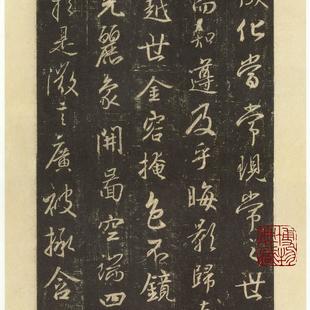 成化當常現常之世
而知遵及乎晦影歸
越世金容掩色不鏡
光麗象開圖空端四
於是微言廣被拯含